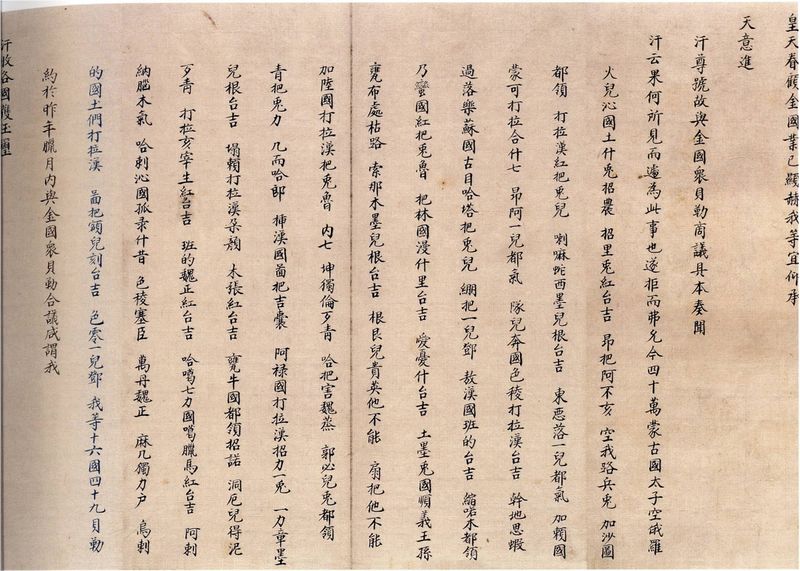 皇天眷顧金國業已顯赫我等宜仰承
天意進
汗尊號故與金國衆貝勒商議具本奏聞
汗云果何所見而遽為此事也遂拒而弗允今四十萬蒙古國太子空俄羅
火兒沁國土什兎招農 招里兎紅台吉 昂把阿不亥 空我路兵兎 加沙圖
都領 打拉漢紅把兎兒 喇嘛蛇西墨兒根台吉 東惡落一兒都氣 加賴國
蒙可打拉合什七 昂阿一兒都氣 隊兒奔國色稜打拉漢台吉 幹地思蝦
過落樂蘇國古目哈塔把兎兒 綳把一兒鄧 敖漢國班的台吉 鎖喏木都領
乃蠻國紅把兎魯 把林國漫什里台吉 愛憂什台吉 土墨兎國順義王孫
甕布處枯路 索那木墨兒根台吉 根艮兒貴英他不能 扇把他不能
加陸國打拉漢把兎魯 內七 坤獨倫歹青 哈把害魏蒸 郭必兒兎都領
青把兎力 几而哈郎 挿漢國啚把吉囊 阿祿國打拉漢招力一兎 一力章墨
兒根台吉 塌賴打拉漢朵顏 木張紅台吉 甕牛國都領招諾 洞厄兒得泥
歹青 打拉亥宰生紅台吉 班的魏正紅台吉 哈噶七力國噶臘馬紅台吉 阿剌
納腦木氣 哈剌沁國孤录什昔 色稜塞臣 萬丹魏正 麻几獨力户 鳥剌
的國土們打拉漢 啚把額兒刻台吉 色零一兒鄧 我等十六國四十九貝勒
約於昨年臘月內與金國衆貝勒合議咸謂我
汗收各國獲玉璽